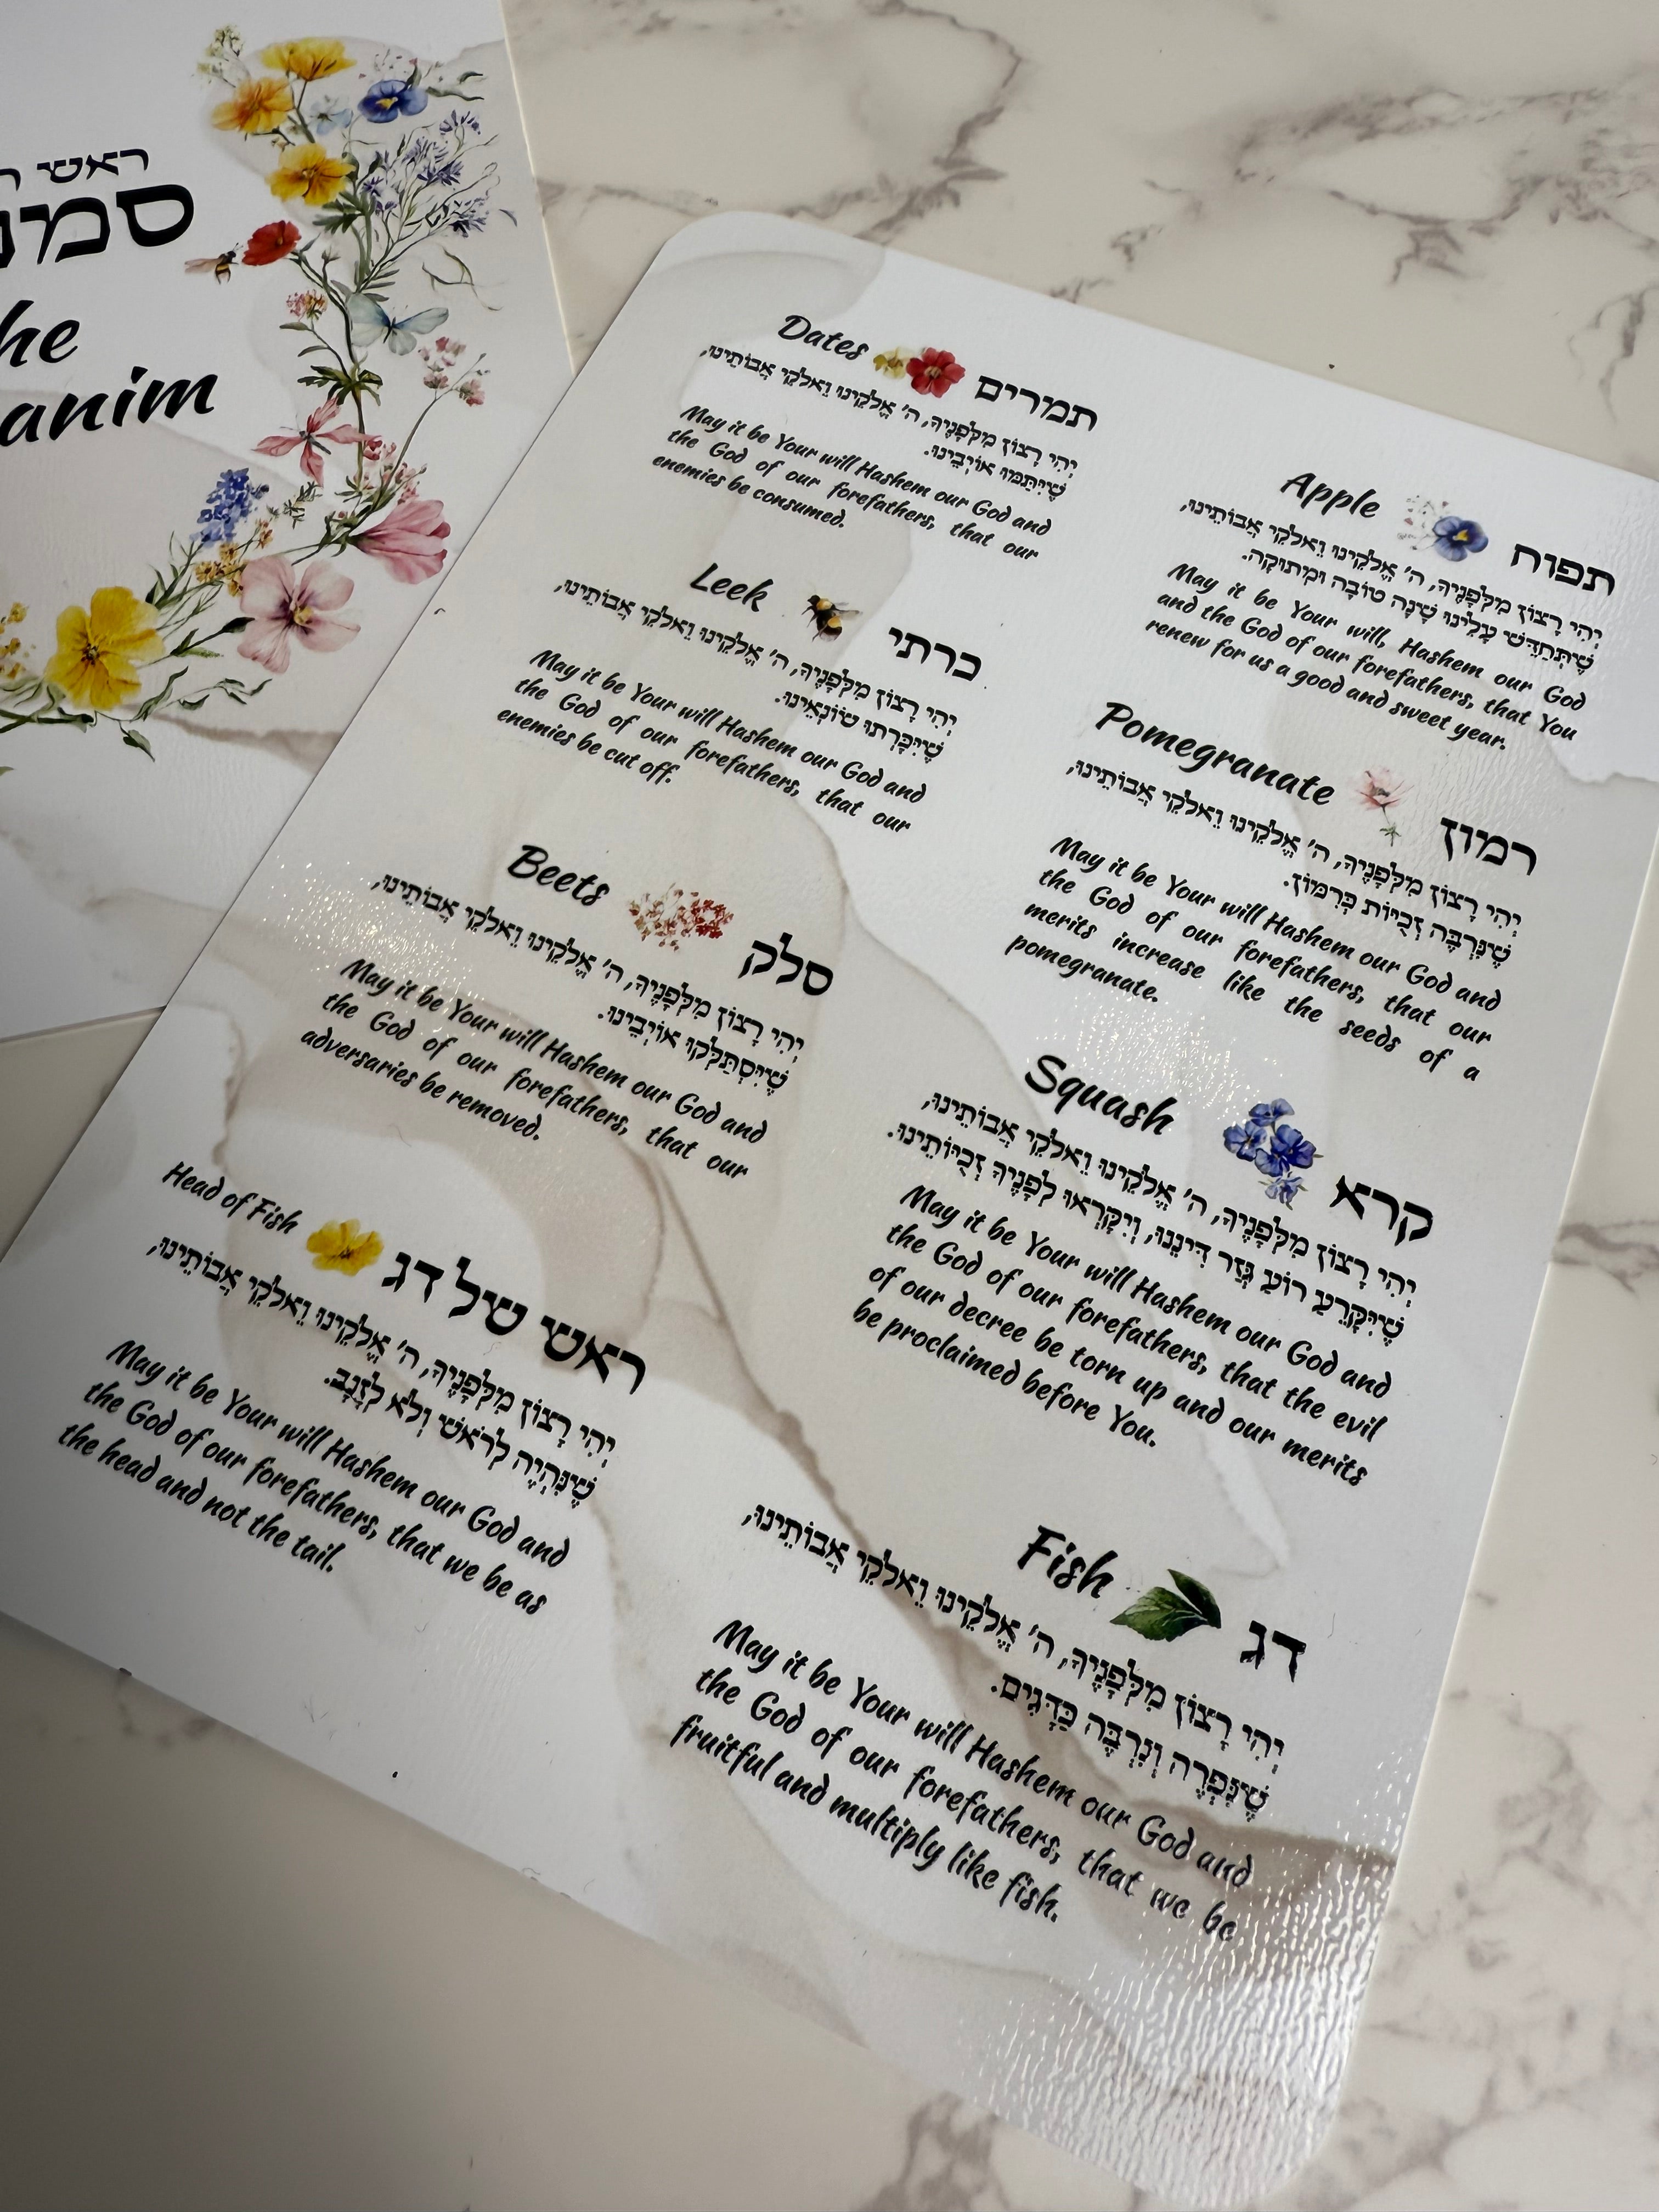 ראש
סמנ
he
anim
Apple תפוח
יְהִי רָצוֹן מִלְּפָנֶיךָ, ה' אֱלֹקֵינוּ וֵאלֹקֵי אֲבוֹתֵינוּ,
שֶׁתְּחַדֵּשׁ עָלֵינוּ שָׁנָה טוֹבָה וּמְתוּקָה.
May it be Your will, Hashem our God
and the God of our forefathers, that You
renew for us a good and sweet year.
Pomegranate רמון
יְהִי רָצוֹן מִלְּפָנֶיךָ, ה' אֱלֹקֵינוּ וֵאלֹקֵי אֲבוֹתֵינוּ,
שֶׁנַּרְבֶּה זְכֻיּוֹת כָּרִמּוֹן.
May it be Your will Hashem our God and
the God of our forefathers, that our
merits increase like the seeds of a
pomegranate.
Squash קרא
יְהִי רָצוֹן מִלְּפָנֶיךָ, ה' אֱלֹקֵינוּ וֵאלֹקֵי אֲבוֹתֵינוּ,
שֶׁיִּקָּרַע רוֹעַ גְּזַר דִּינֵנוּ, וְיִקָּרְאוּ לְפָנֶיךָ זְכֻיּוֹתֵינוּ.
May it be Your will Hashem our God and
the God of our forefathers, that the evil
of our decree be torn up and our merits
be proclaimed before You.
Fish דג
יְהִי רָצוֹן מִלְּפָנֶיךָ, ה' אֱלֹקֵינוּ וֵאלֹקֵי אֲבוֹתֵינוּ,
שֶׁנִּפְרֶה וְנִרְבֶּה כַּדָּגִים.
May it be Your will Hashem our God and
the God of our forefathers, that we be
fruitful and multiply like fish.
Dates תמרים
יְהִי רָצוֹן מִלְּפָנֶיךָ, ה' אֱלֹקֵינוּ וֵאלֹקֵי אֲבוֹתֵינוּ,
שֶׁיִּתַּמּוּ אוֹיְבֵינוּ.
May it be Your will Hashem our God and
the God of our forefathers, that our
enemies be consumed.
Leek כרתי
יְהִי רָצוֹן מִלְּפָנֶיךָ, ה' אֱלֹקֵינוּ וֵאלֹקֵי אֲבוֹתֵינוּ,
שֶׁיִּכָּרְתוּ שׂוֹנְאֵינוּ.
May it be Your will Hashem our God and
the God of our forefathers, that our
enemies be cut off.
Beets סלק
יְהִי רָצוֹן מִלְּפָנֶיךָ, ה' אֱלֹקֵינוּ וֵאלֹקֵי אֲבוֹתֵינוּ,
שֶׁיִּסְתַּלְּקוּ אוֹיְבֵינוּ.
May it be Your will Hashem our God and
the God of our forefathers, that our
adversaries be removed.
Head of Fish ראש של דג
יְהִי רָצוֹן מִלְּפָנֶיךָ, ה' אֱלֹקֵינוּ וֵאלֹקֵי אֲבוֹתֵינוּ,
שֶׁנִּהְיֶה לְרֹאשׁ וְלֹא לְזָנָב.
May it be Your will Hashem our God and
the God of our forefathers, that we be as
the head and not the tail.